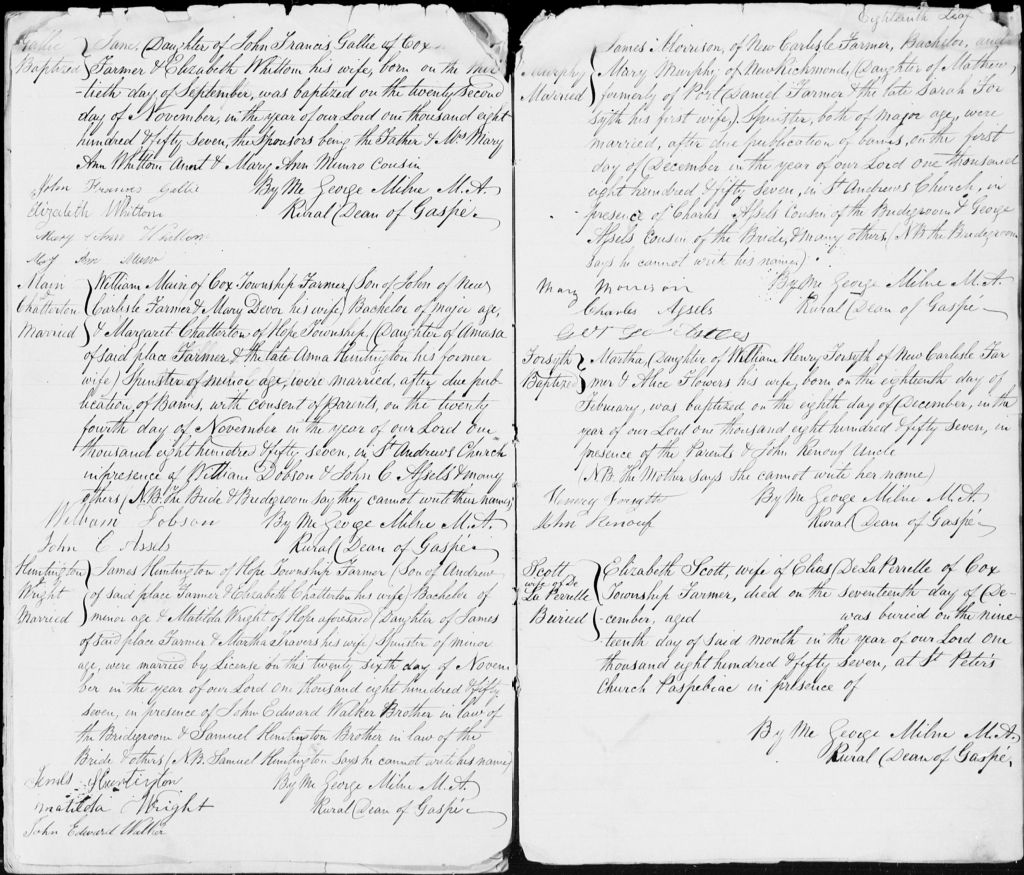 Gallie
Baptized
Jane, Daughter of John Francis Gallie of Cox
Farmer & Elizabeth Whittom his wife, born on the thir-
-tieth day of September, was baptized on the twenty second
day of November, in the year of our Lord one thousand eight
hundred & fifty seven, the Sponsors being the Father & Mrs Mary
Ann Whittom Aunt & Mary Ann Munro Cousin
John Francis Gallie By Me George Milne M.A.
Elizabeth Whittom Rural Dean of Gaspé.
Mary Ann Whittom
May Ann Munro
Main
Chatterton
Married
William Main of Cox Township Farmer (Son of John of New
Carlisle Farmer & Mary Devoe his wife) Bachelor of major age,
& Margaret Chatterton of Hope Township, (Daughter of Amasa
of said place Farmer & the late Anna Huntington his former
wife) Spinster of minor age, were married, after due pub-
lication of Banns, with consent of Parents, on the twenty
fourth day of November in the year of our Lord one
thousand eight hundred & fifty seven, in St Andrews Church
in presence of William Dobson & John C. Assels & many
others (N.B. the Bride & Bridegroom say they cannot write their names)
William Dobson By Me George Milne M.A.
John C Assels Rural Dean of Gaspé
Huntington
Wright
Married
James Huntington of Hope Township Farmer (Son of Andrew
of said place Farmer & Elizabeth Chatterton his wife) Bachelor of
minor age & Matilda Wright of Hope aforesaid (Daughter of James
of said place Farmer & Martha Travers his wife) Spinster of minor
age, were married by License on this twenty sixth day of Novem
ber in the year of our Lord one thousand eight hundred & fifty
seven, in presence of John Edward Walker Brother in law of
the Bridegroom & Samuel Huntington Brother in law of the
Bride & others (N.B. Samuel Huntington says he cannot write his name)
James Huntington By Me George Milne M.A.
Matilda Wright Rural Dean of Gaspé
John Edward Walker
Eighteenth Leaf
Murphy
Married
James Morrison, of New Carlisle Farmer, Bachelor, and
Mary Murphy of New Richmond, (Daughter of Mathew,
formerly of Port Daniel Farmer & the late Sarah For
syth his first wife,) Spinster, both of major age, were
married, after due publication of banns, on the first
day of December in the year of our Lord one thousand
eight hundred & fifty seven, in St Andrews Church, in
presence of Charles Assels Cousin of the Bridegroom & George
Assels Cousin of the Bride, & many others (N.B. the Bridegroom
says he cannot write his name)
Mary Morrison By Me George Milne M.A.
Charles Assels Rural Dean of Gaspé
Forsyth
Baptized
Martha, Daughter of William Henry Forsyth of New Carlisle Far
mer & Alice Flowers his wife, born on the eighteenth day of
February, was baptized on the eighth day of December, in the
year of our Lord one thousand eight hundred & fifty seven, in
presence of the Parents & John Renouf Uncle
(N.B. the Mother says she cannot write her name)
Henery Forsyth By Me George Milne M.A.
John Renouf Rural Dean of Gaspé
Scott
wife of De
La Perrelle
Buried
Elizabeth Scott, wife of Elias De La Perrelle of Cox
Township Farmer, died on the seventeenth day of De-
cember, aged was buried on the nine-
teenth day of said month in the year of our Lord one
thousand eight hundred & fifty seven, at St Peter's
Church Paspebiac in presence of
By Me George Milne M.A.
Rural Dean of Gaspé.